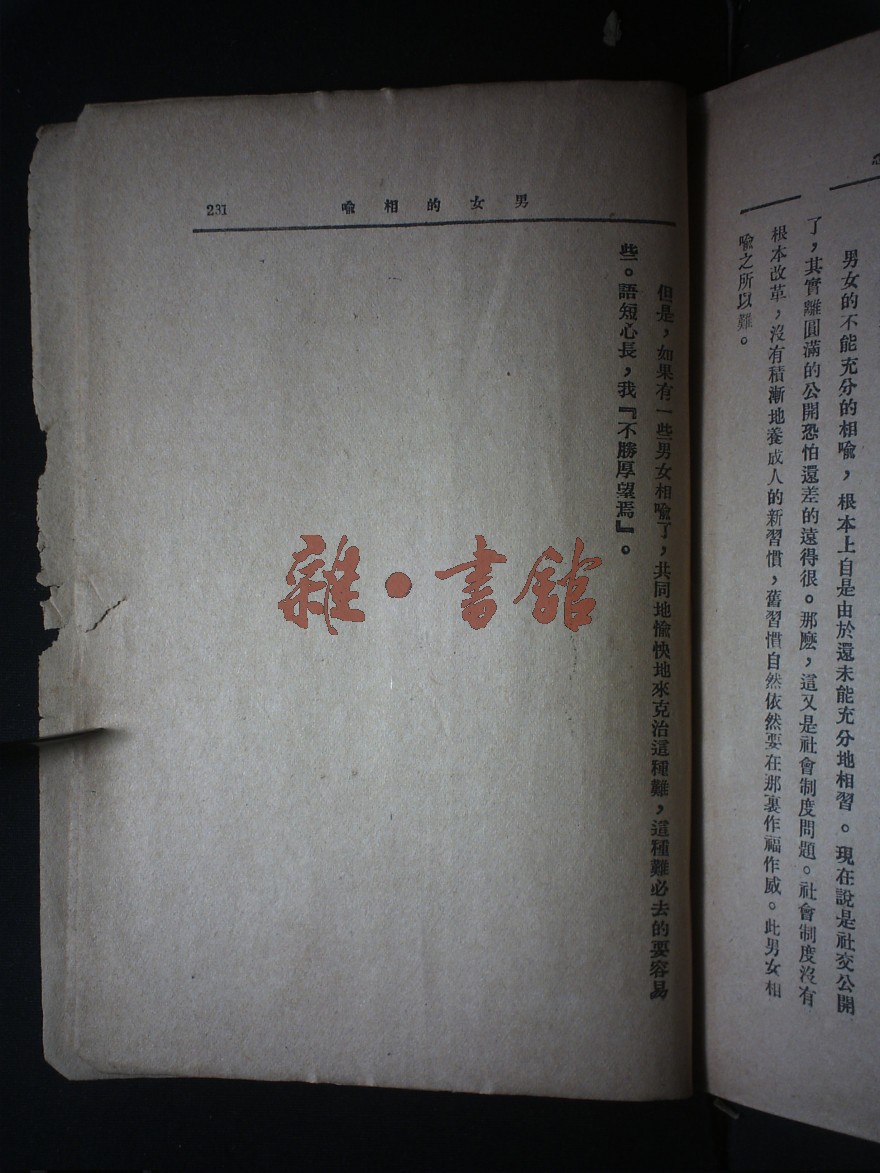 男女的不能充分的相喩，根本上自是由於還未能充分地相習。現在說是社交公開
了，其實離圓滿的公開恐怕還差的遠得很。那麽，這又是社會制度問題。社會制度沒有
根本改革，沒有積漸地養成人的新習慣，舊習慣自然依然要在那裏作福作威。此男女相
喩之所以難。
男女的相喩
231
但是，如果有一些男女相喩了，共同地愉快地來克治這種難，這種難必去的要容易
些。語短心長，我『不勝厚望焉』。
雜·書館